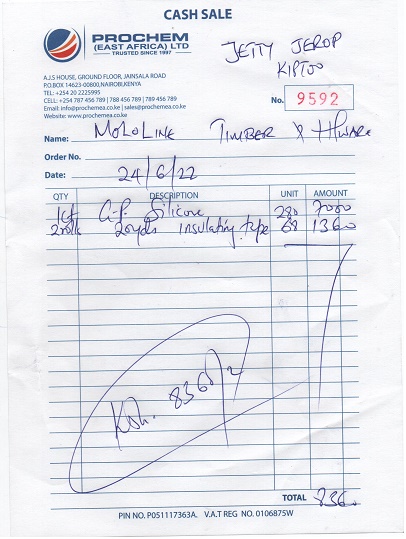 CASH SALE
PROCHEM
(EAST AFRICA) LTD
TRUSTED SINCE 1997
JETTY JEROP
KIPTOO
A.J.S HOUSE, GROUND FLOOR, JAINSALA ROAD
P.O.BOX 14623-00800,NAIROBI.KENYA
TEL: +254 20 2225995
CELL: +254 787 456 789 | 788 456 789 | 789 456 789
Email: info@prochemea.co.ke | sales@prochemea.co.ke
Website: www.prochemea.co.ke
No. 9592
Name: MOLOLINE TIMBER & H/WARE
Order No.
Date: 24/6/22
QTY DESCRIPTION UNIT AMOUNT
G.P. Silicone 280 7000
20yds insulating tape 68 1360
Ksh. 8360/=
TOTAL 8360
PIN NO. P051117363A. V.A.T REG NO. 0106875W